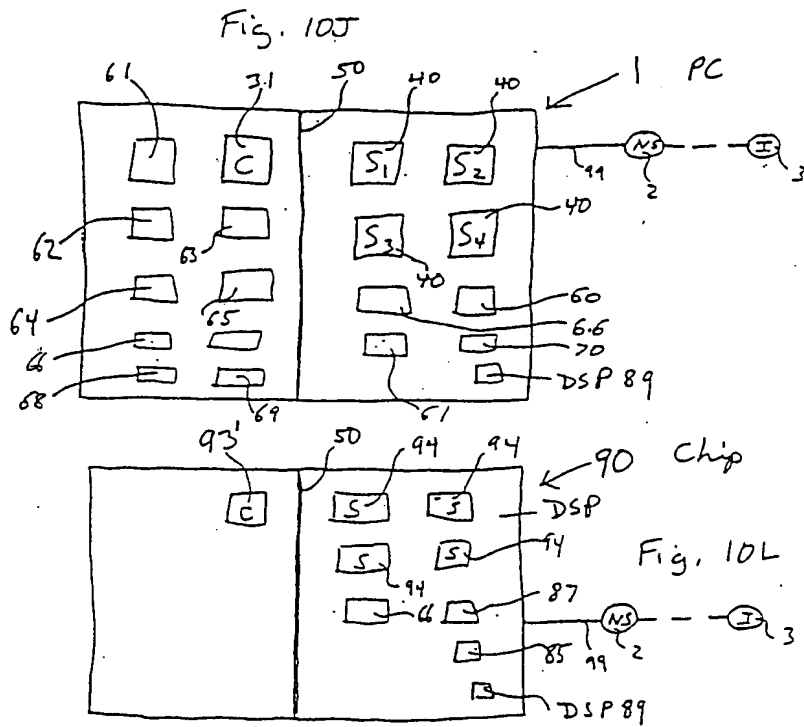 Fig. 10J
61 31 50 40 40 1 PC
C S1 S2 NS I
99 2 3
62 63 S3 S4 40
40
64 65 60
6.6
66 70
68 69 61 DSP 89
93' 50 94 94 90 Chip
C S S DSP
S S 94 Fig. 10L
94
66 87 NS I
85 99 2 3
DSP 89